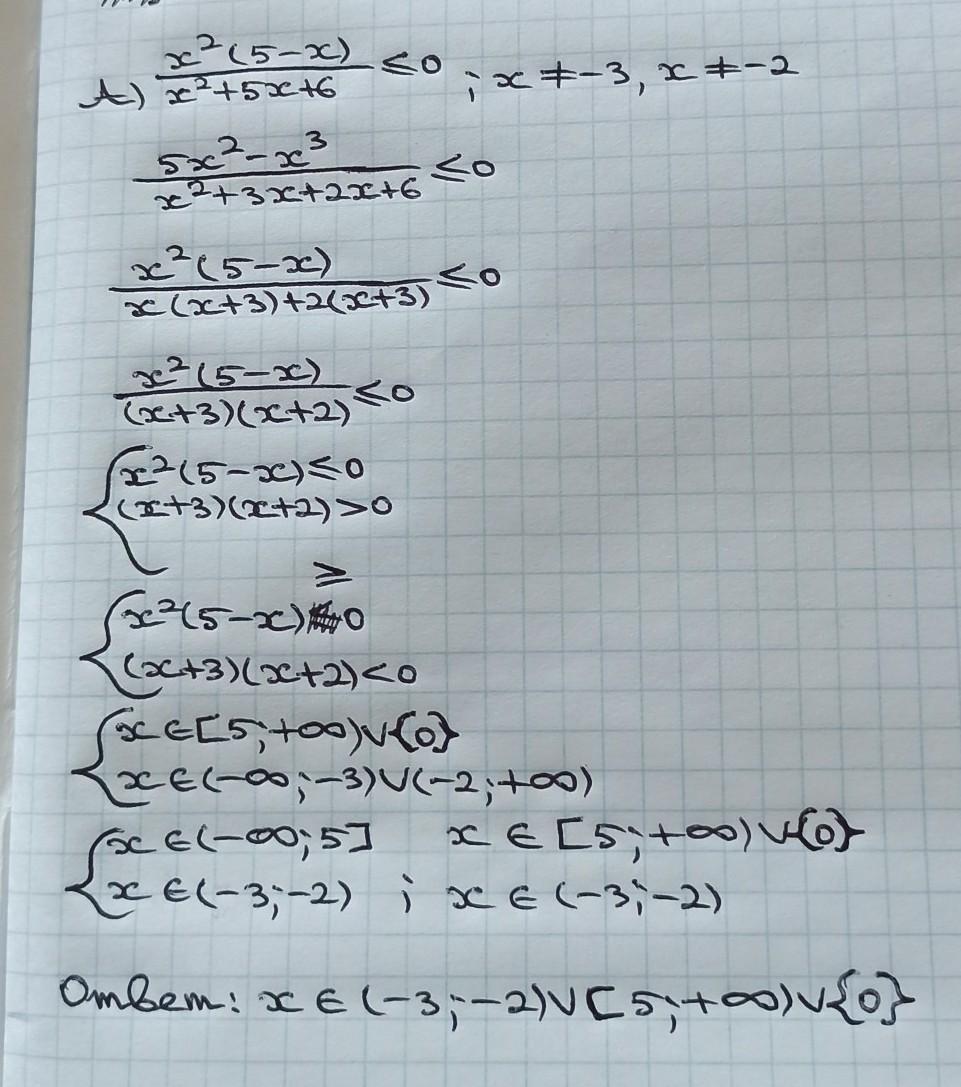 А) x²(5-x)/x²+5x+6 ≤0 ; x≠-3, x≠-2
5x²-x³/x²+3x+2x+6 ≤0
x²(5-x)/x(x+3)+2(x+3) ≤0
x²(5-x)/(x+3)(x+2) ≤0
{x²(5-x)≤0
(x+3)(x+2)>0
{x²(5-x)≥0
(x+3)(x+2)<0
{x∈[5;+∞)∨{0}
x∈(-∞;-3)∪(-2;+∞)
{x∈(-∞;5] x∈[5;+∞)∨{0}
x∈(-3;-2) ; x∈(-3;-2)
Ответ: x∈(-3;-2)∨[5;+∞)∨{0}